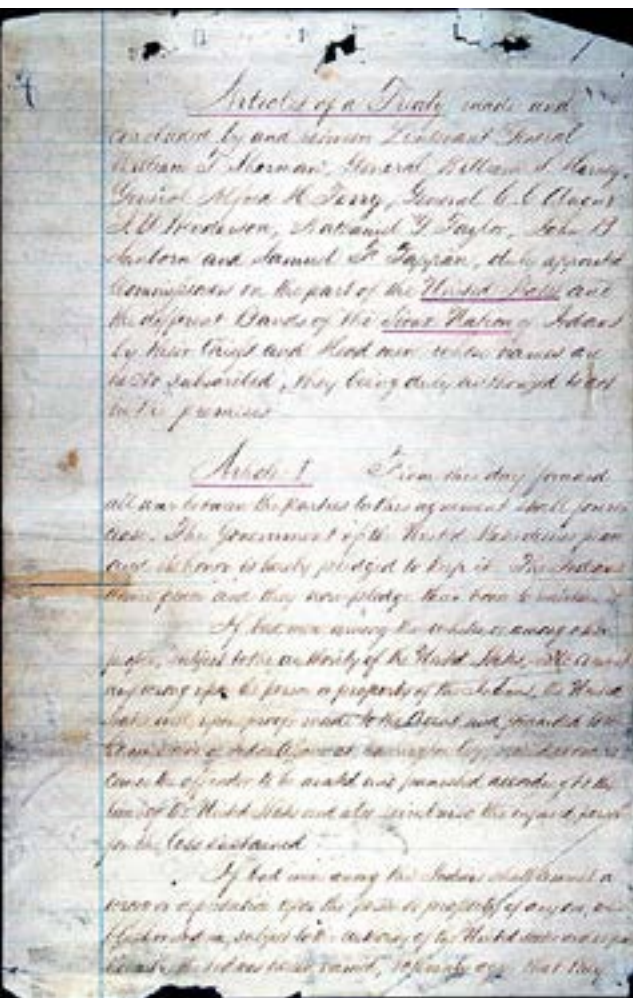 Articles of a Treaty made and
concluded by and between Lieutenant General
William T. Sherman, General William S. Harney,
General Alfred H. Terry, General C. C. Augur
J. B. Henderson, Nathaniel G. Taylor, John B
Sanborn and Samuel F. Tappan, duly appointed
Commissioners on the part of the United States and
the different Bands of the Sioux Nation of Indians
by their Chiefs and Head men whose names are
hereto subscribed, they being duly authorized to act
in the premises
Article I From this day forward
all war between the parties to this agreement shall forever
cease. The Government of the United States desires peace
and its honor is hereby pledged to keep it. The Indians
desire peace and they now pledge their honor to maintain
If bad men among the whites or among other
people, subject to the authority of the United States, shall commit
any wrong upon the person or property of the Indians, the United
States will upon proof made to the Agent and forwarded to the
Commissioner of Indian Affairs at Washington City, proceed at once to
cause the offender to be arrested and punished according to the
laws of the United States and also reimburse the injured person
for the loss sustained.
If bad men among the Indians shall commit a
wrong or depredation upon the person or property of any one, white
black or indian, subject to the authority of the United States and at peace
the Indians herein named, solemnly agree that they